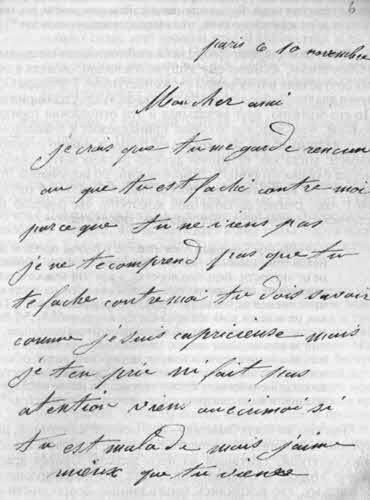 6
paris le 10 novembre
Mon cher ami
je crois que tu me garde rencun
ou que tu est faché contre moi
parce que tu ne viens pas
je ne te comprend pas que tu
te fache contre moi tu dois savoir
comme je suis capricieuse mais
je ten prie ni fait pas
atention vien ou écri moi si
tu est malade mais j'aime
mieux que tu vienes